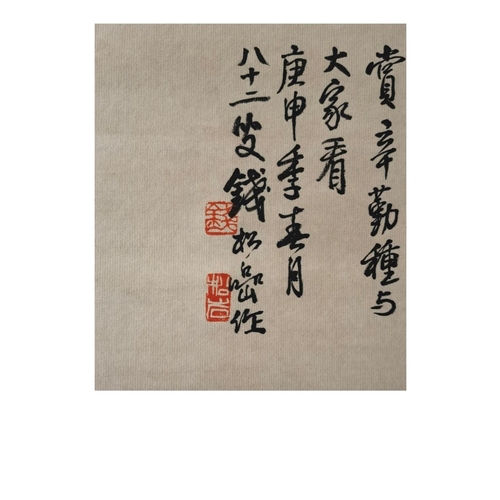 賞辛勤種与
大家看
庚申季春月
八十二叟錢松嵒作
錢
松嵒